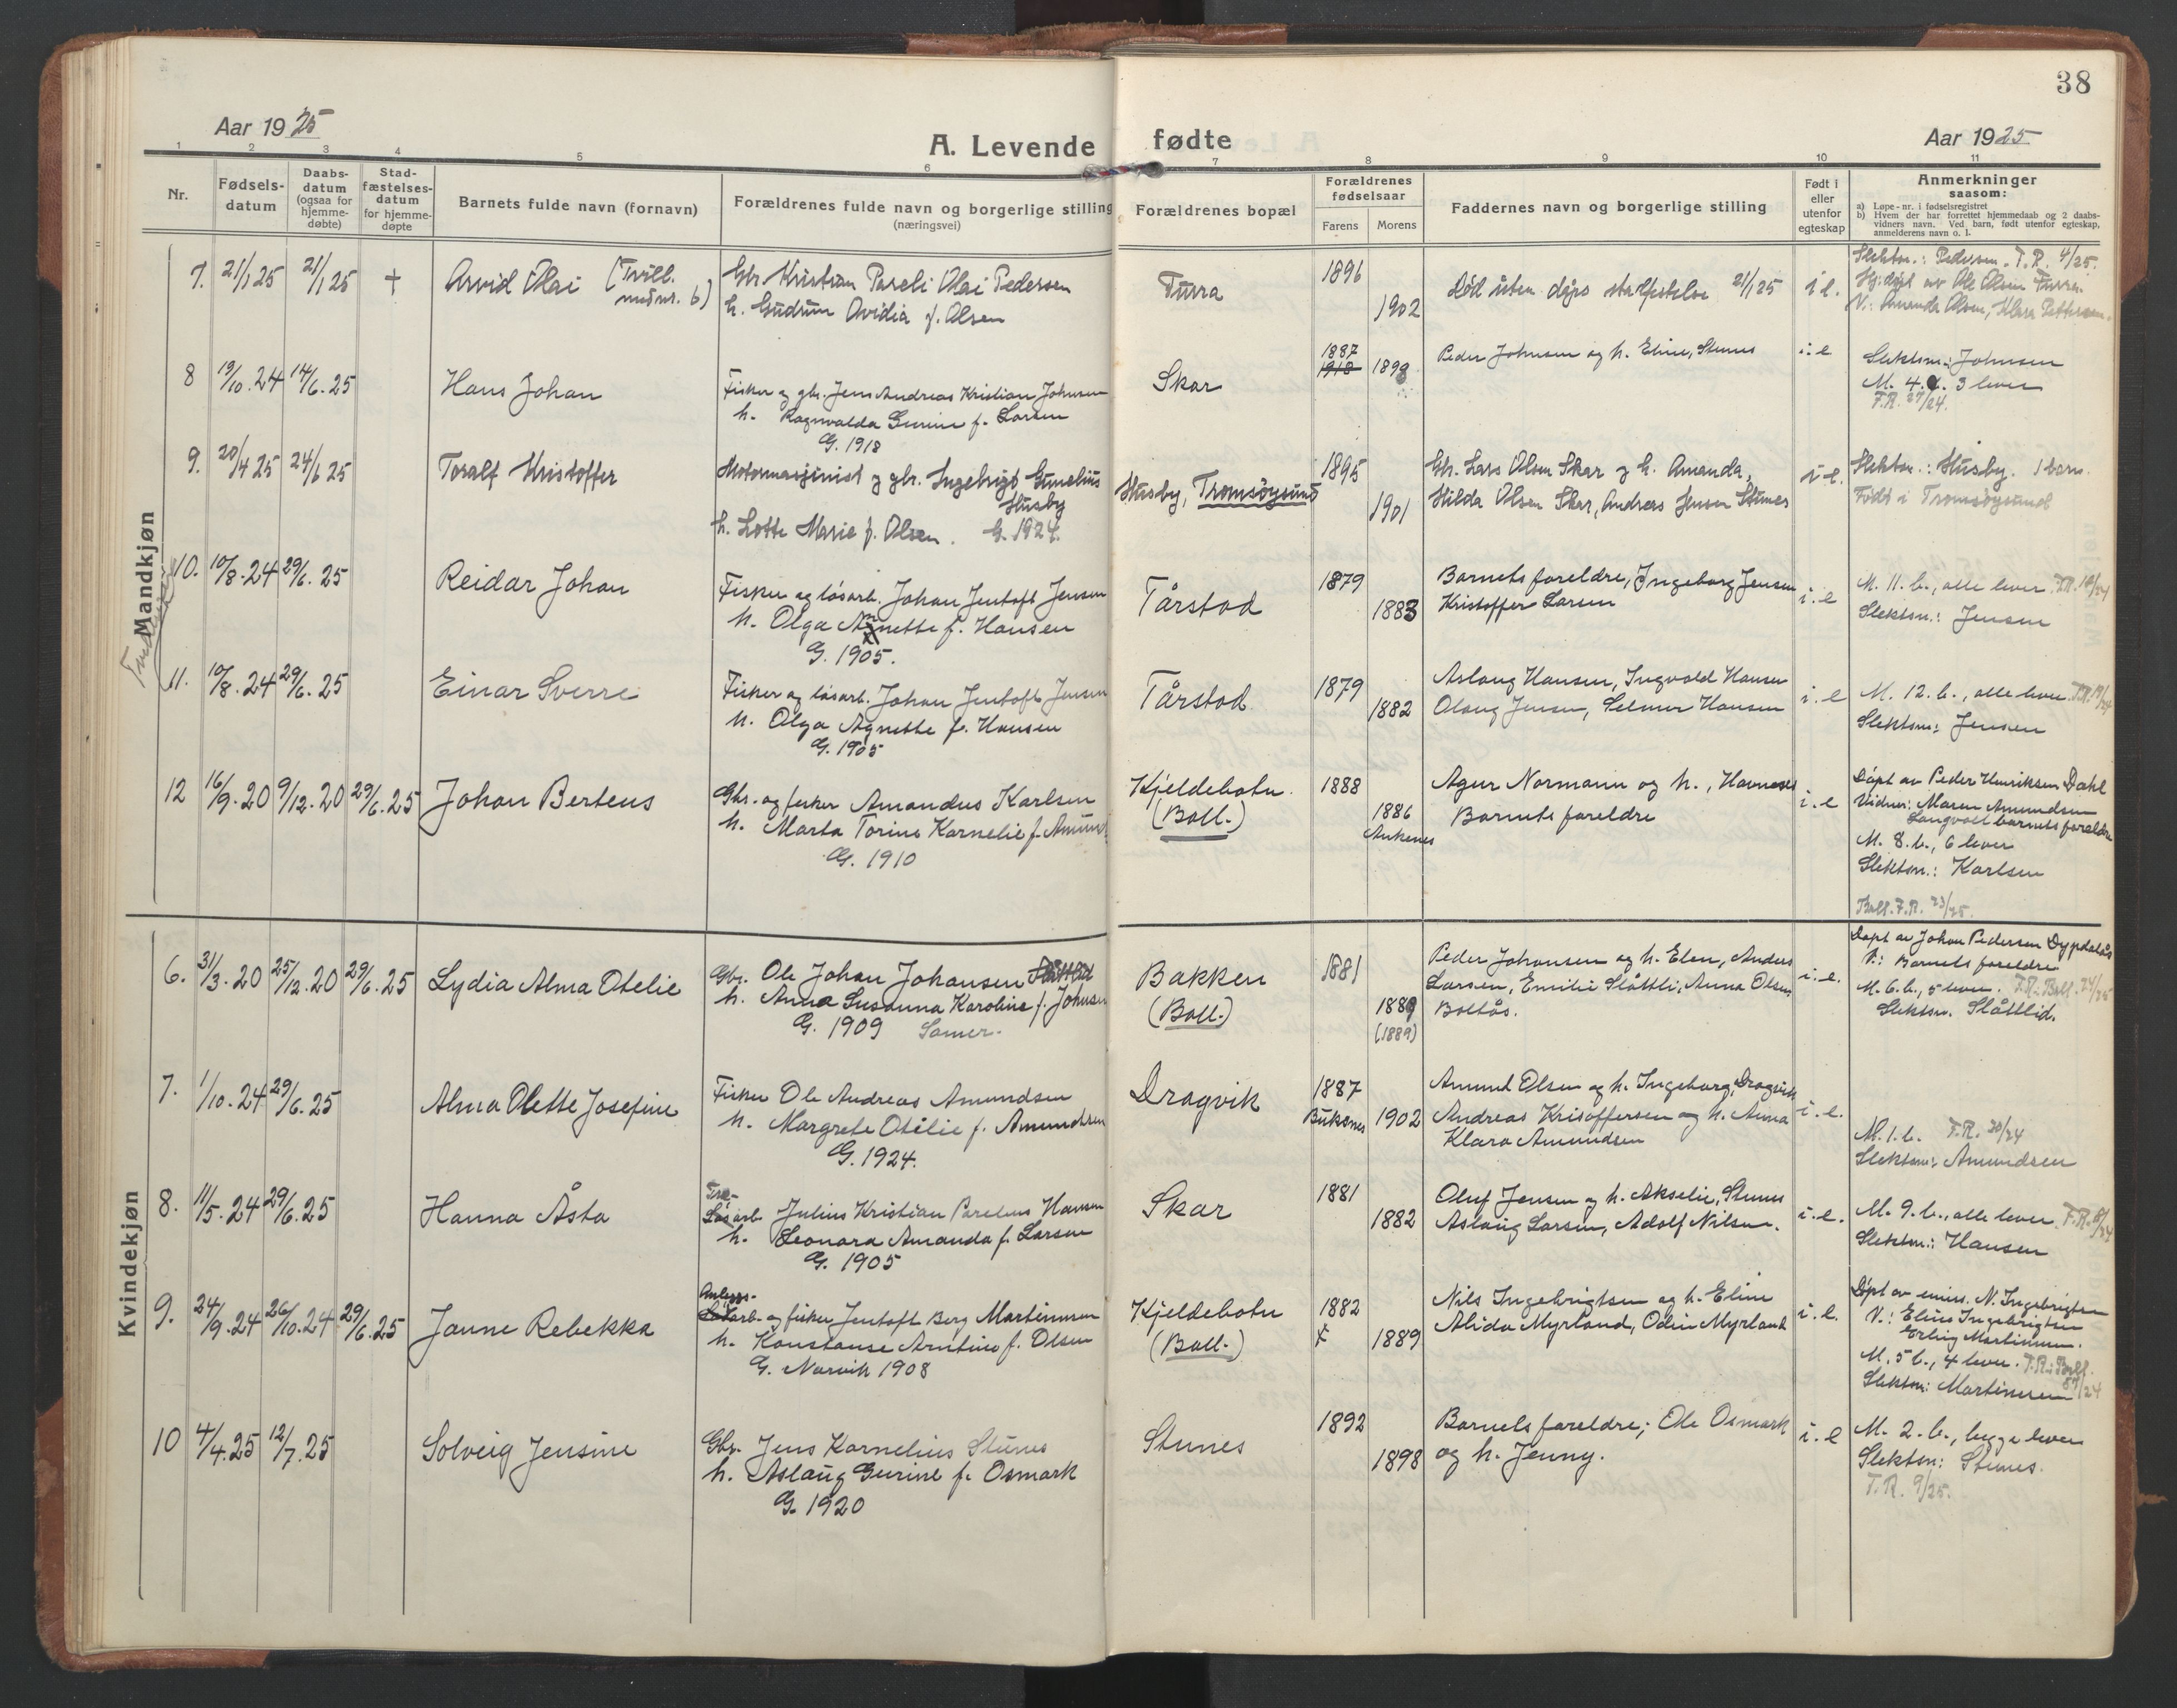 38
Aar 1925
A. Levende fødte
Aar 1925
1 2 3 4 5 6 7 8 9 10 11
Nr.
Fødsels-
datum
Daabs-
datum
(ogsaa for
hjemme-
døbte)
Stad-
fæstelses-
datum
for hjemme-
døpte
Barnets fulde navn (fornavn)
Forældrenes fulde navn og borgerlige stilling
(næringsvei)
Forældrenes bopæl
Forældrenes
fødselsaar
Farens Morens
Faddernes navn og borgerlige stilling
Født i
eller
utenfor
egteskap
Anmerkninger
saasom:
a) Løpe-nr. i fødselsregistret
b) Hvem der har forrettet hjemmedaab og 2 daabs-
vidners navn. Ved barn, født utenfor egteskap,
anmelderens navn o. l.
Mandkjøn
7. 21/1 25 21/1 25 +
Arvid Olai (Tvill.
med nr. 6)
Gbr Kristian Pareli Olai Pedersen
h. Gudrun Avidia f. Olsen
Turra
1896
1902
Død uten dåps stadfestelse 21/1 25
i e.
Slektsn.: Pedersen. F.R. 4/25.
Hj.døpt av Ole Olsen Turra.
V: Amanda Olsen, Klara Pettersen.
8 19/10.24 14/6.25
Hans Johan
Fisker og gbr. Jens Andreas Kristian Johnsen
h. Ragnvalda Gurine f. Larsen
G. 1918
Skar
1887
1918 1898
Peder Johnsen og h. Eline, Stunes
i. e
Slektsn.: Johnsen
M. 4. b. 3 lever
F.R. 27/24.
9. 20/4 25 24/6 25
Toralf Kristoffer
Motormasjinist og gbr. Ingebrigt Gunelius
Husby
h. Lotte Marie f. Olsen. G. 1924.
Husby, Tromsøysund
1895
1901
Gbr. Lars Olsen Skar og h. Amanda,
Hilda Olsen Skar, Andreas Jensen Stunes
i e.
Slektsn.: Husby. 1 barn.
Født i Tromsøysund
Tvillinger
10. 10/8.24 29/6.25
Reidar Johan
Fisker og løsarb. Johan Jentoft Jensen
h. Olga Agnette f. Hansen
G. 1905.
Tårstad
1879
1883
Barnets foreldre, Ingeborg Jensen
Kristoffer Larsen
i. e
M. 11. b., alle lever. F.R. 18/24
Slektsn.: Jensen
11. 10/8.24 29/6.25
Einar Sverre
Fisker og løsarb. Johan Jentoft Jensen
h. Olga Agnette f. Hansen
G. 1905
Tårstad
1879
1882
Aslaug Hansen, Ingvald Hansen
Olaug Jensen, Selmer Hansen
i. e
M. 12. b., alle lever. F.R. 19/24
Slektsn.: Jensen
12 16/9.20 9/12.20 29/6.25
Johan Berteus
Gbr. og fisker Amandus Karlsen
h. Marta Torine Kornelie f. Amund
G. 1910
Kjeldebotn.
(Ball.)
1888
1886
Ankenes
Agur Normann og h., Havnnes
Barnets foreldre
i. e
Døpt av Peder Henriksen Dahl
Vidner: Maren Amundsen
Langvoll barnets foreldre
M. 8. b., 6 lever
Slektsn.: Karlsen
Ball. F.R. 23/25.
Kvindekjøn
6. 31/3.20 25/12.20 29/6.25
Lydia Alma Otelie
Gbr. Ole Johan Johansen Slåttlid
h. Anna Susanna Karoline f. Johnsen
G. 1909 Samer.
Bakken
(Ball.)
1881
1889
(1889)
Peder Johansen og h. Elen, Anders
Larsen, Emilie Slåttli, Anna Olsen
Boltås.
i. e.
Døpt av Johan Pedersen Dypdalås
V.: Barnets foreldre
M. 6. b., 5 lever. F.R.: Ball. 24/25
Slektsn. Slåttlid.
7. 1/10.24 29/6.25
Alma Olette Josefine
Fisker Ole Andreas Amundsen
h. Margrete Otilie f. Amundsen
G. 1924.
Dragvik
1887
Buksnes 1902
Amund Olsen og h. Ingeborg, Dragvik
Andreas Krisoffersen og h. Anna
Klara Amundsen
i. e.
M. 1. b. F.R. 20/24
Slektsn: Amundsen
8. 11/5.24 29/6.25
Hanna Åsta
Løsarb. Julius Kristian Parelius Hansen
h. Leonara Amanda f. Larsen
G. 1905
Skar
1881
1882
Oluf Jensen og h. Akselie, Stunes
Aslaug Larsen, Adolf Nilsen.
i. e.
M. 9. b., alle lever. F.R.
Slektsn.: Hansen
9. 24/9.24 26/10.24 29/6.25
Janne Rebekka
Anleggs-
arb. og fisker Jentoft Berg Martinusen
h. Konstanse Arntine f. Olsen
G. Narvik 1908
Kjeldebotn
(Ball.)
1882
1889
Nils Ingebrigtsen og h. Eline
Alida Myrland, Odin Myrland
i. e.
Døpt av emis. N. Ingebrigtsen
V.: Eline Ingebrigtsen
Erling Martinusen.
M. 5 b., 4 lever. F.R.: Ball.
87/24
Slektsn: Martinusen
10 4/4.25 12/7.25
Solveig Jensine
Gbr. Jens Kornelius Stunes
h. Aslaug Gurine f. Osmark
G. 1920
Stunes
1892
1898
Barnets foreldre; Ole Osmark
og h. Jenny.
i. e
M. 2. b., begge lever
Slektsn: Stunes.
F.R. 9/25.